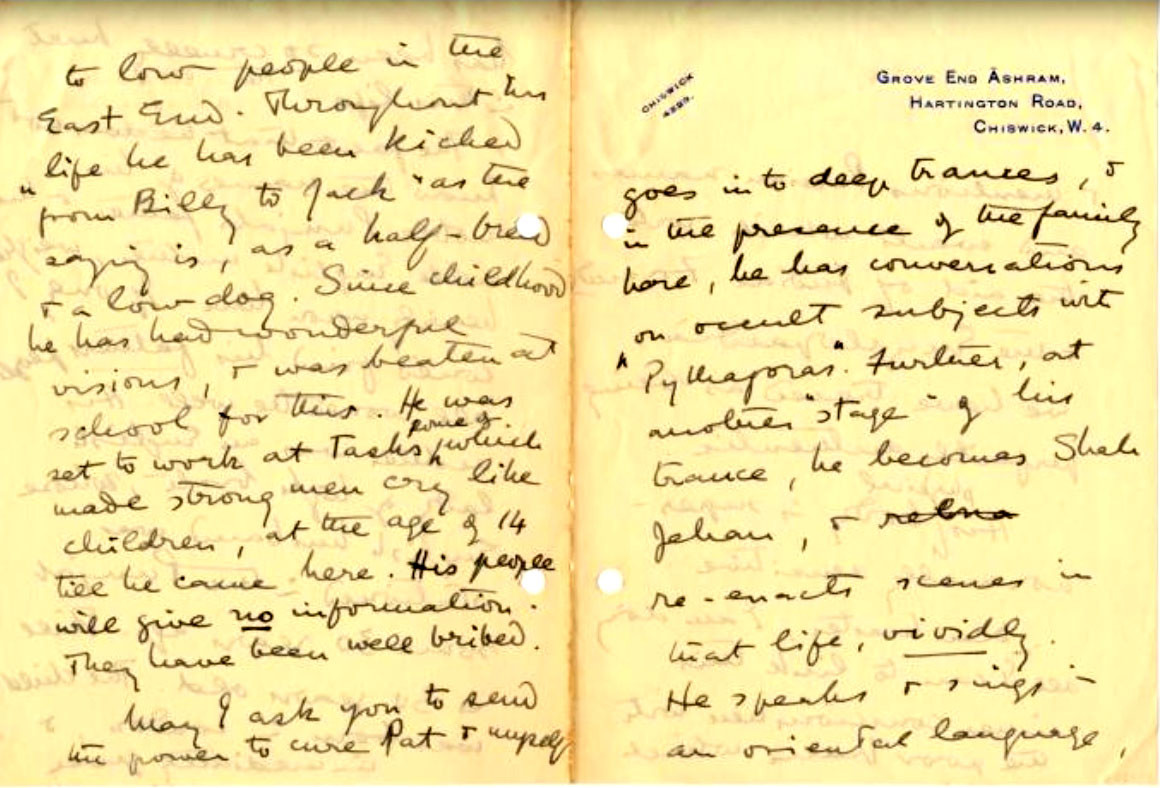 to low people in the
East End. Throughout his
life he has been kicked
"from Billy to Jack" as the
saying is, as a half-bred
& a low dog. Since childhood
he has had wonderful
visions, & was beaten at
school for this. He was
set to work at Tasks, some of which
made strong men cry like
children, at the age of 14
till he came here. His people
will give no information.
They have been well bribed.
May I ask you to send
the power to cure Pat & myself
CHISWICK
GROVE END ĀSHRAM,
HARTINGTON ROAD,
CHISWICK, W. 4.
goes into deep trances, &
in the presence of the family
here, he has conversations
on occult subjects with
"Pythagoras". Further, at
another "stage" of his
trance, he becomes Shah
Jehan, &
re-enacts scenes in
that life, vividly.
He speaks & sings
an oriental language,